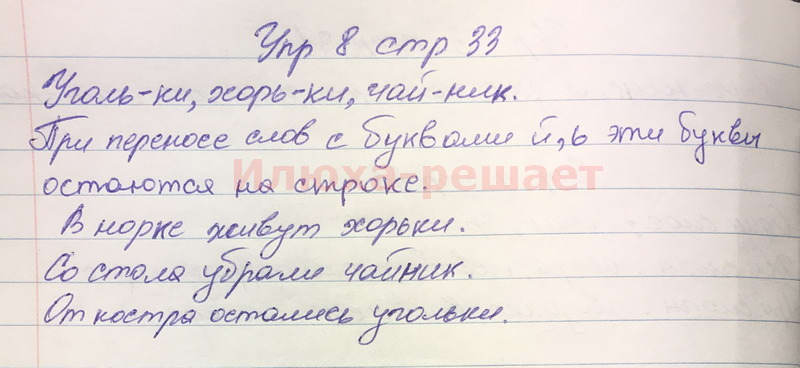 Упр 8 стр 33
Уголь-ки, хорь-ки, чай-ник.
При переносе слов с буквами й, ь эти буквы
остаются на строке.
Илюха-решает
В норке живут хорьки.
Со стола убрали чайник.
От костра остались угольки.